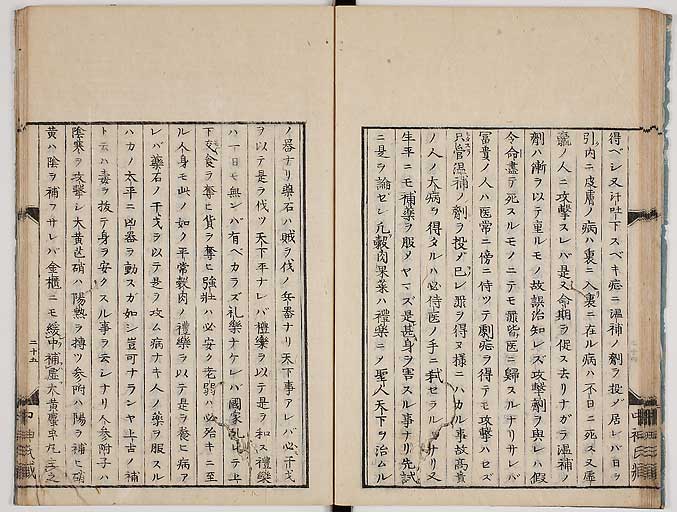 得ベシ又汗吐下スベキ症ニ温補ノ劑ヲ投ゲ居レバ日ヲ
引内ニ皮膚ノ病ハ裏ニ入裏ニ在ル病ハ不日ニ死ス又虚
羸ノ人ニ攻擊スレバ是又命期ヲ促ス去リナガラ温補ノ
劑ハ漸ヲ以テ重ルモノ故誤治知レズ攻擊劑ヲ與レハ假
令命盡テ死スルモノニテモ罪皆医ニ歸スルナリサレバ
冨貴ノ人ハ医常ニ傍ニ侍ツテ劇症ヲ得テモ攻擊ハセズ
只管温補ノ劑ヲ投ジ已レ罪ヲ得ヌ様ニハカル事故高貴
ノ人ノ大病ヲ得タルハ必侍医ノ手ニ弑セラルヽナリ又
生平ニモ補藥ヲ服シヤマズ是甚身ヲ害スル事ナリ先試
ニ是ヲ論ゼン凢穀肉果菜ハ禮樂ニノ聖人天下ヲ治ムル
ノ器ナリ藥石ハ賊ヲ伐ノ兵器ナリ天下事アレバ必干戈
ヲ以テ是ヲ伐ツ天下平ナレバ禮樂ヲ以テ是ヲ和ス禮樂
ハ一日モ無ンバ有ベカラズ礼樂ナケレバ國家乱レテ上
下交食ヲ奪ヒ貨ヲ奪ヒ強壮ハ必安ク老弱ハ必殆キニ至
ル人身モ此ノ如ク平常穀肉ノ禮樂ヲ以テ是ヲ養ヒ病ア
レバ藥石ノ干戈ヲ以テ是ヲ攻ム病ナキ人ノ藥ヲ服スル
ハカノ太平ニ凶器ヲ動スガ如シ豈可ナランヤ上古ノ補
ト云ハ毒ヲ抜テ身ヲ安クスル事ヲ云シナリ人参附子ハ
陰寒ヲ攻擊シ大黄芒硝ハ陽熱ヲ摶ツ参附ハ陽ヲ補ヒ硝
黄ハ陰ヲ補フサレバ金櫃ニモ緩中補虚大黄䗪虫丸主之
二十五
中神氏蔵